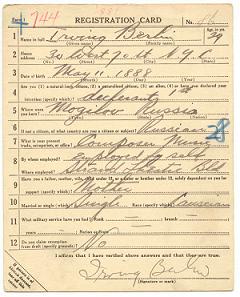 1744
REGISTRATION CARD
No. 46
1 Name in full Irving Berlin Age, in yrs. 29
(Given name) (Family name)
2 Home address 30 West 70 St N.Y.C.
(No.) (Street) (City) (State)
3 Date of birth May 11 1888
(Month) (Day) (Year)
4
intention (specify which)? Declarant
5 Where were you born? Mogilov Russia
(Town) (State) (Nation)
6 If not a citizen, of what country are you a citizen or subject? Russian
7 What is your present trade, occupation, or office? Composer Music
8 By whom employed? employed by self
Where employed?
9 Have you a father, mother, wife, child under 12, or a sister or brother under 12, solely dependent on you for
support (specify which)? Mother
10 Married or single (which)? Single Race (specify which)? Caucasian
11 What military service have you had? Rank branch
years Nation or State
12 Do you claim exemption from draft (specify grounds)? No
I affirm that I have verified above answers and that they are true.
Irving Berlin
(Signature or mark)